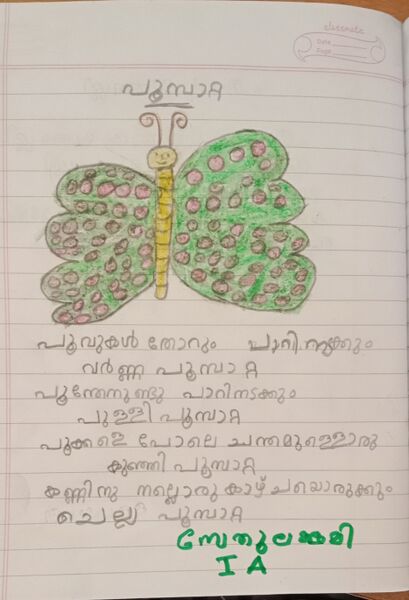 classmate
Date
Page
പൂമ്പാറ്റ
പൂവുകൾ തോറും പാറിനടക്കും
വർണ്ണ പൂമ്പാറ്റ
പൂന്തേനുണ്ടു പാറിനടക്കും
പുള്ളി പൂമ്പാറ്റ
പൂക്കളെ പോലെ ചന്തമുള്ളൊരു
കുഞ്ഞി പൂമ്പാറ്റ
കണ്ണിനു നല്ലൊരു കാഴ്ചയൊരുക്കും
ചെല്ല പൂമ്പാറ്റ
സേതുലക്ഷ്മി
I A